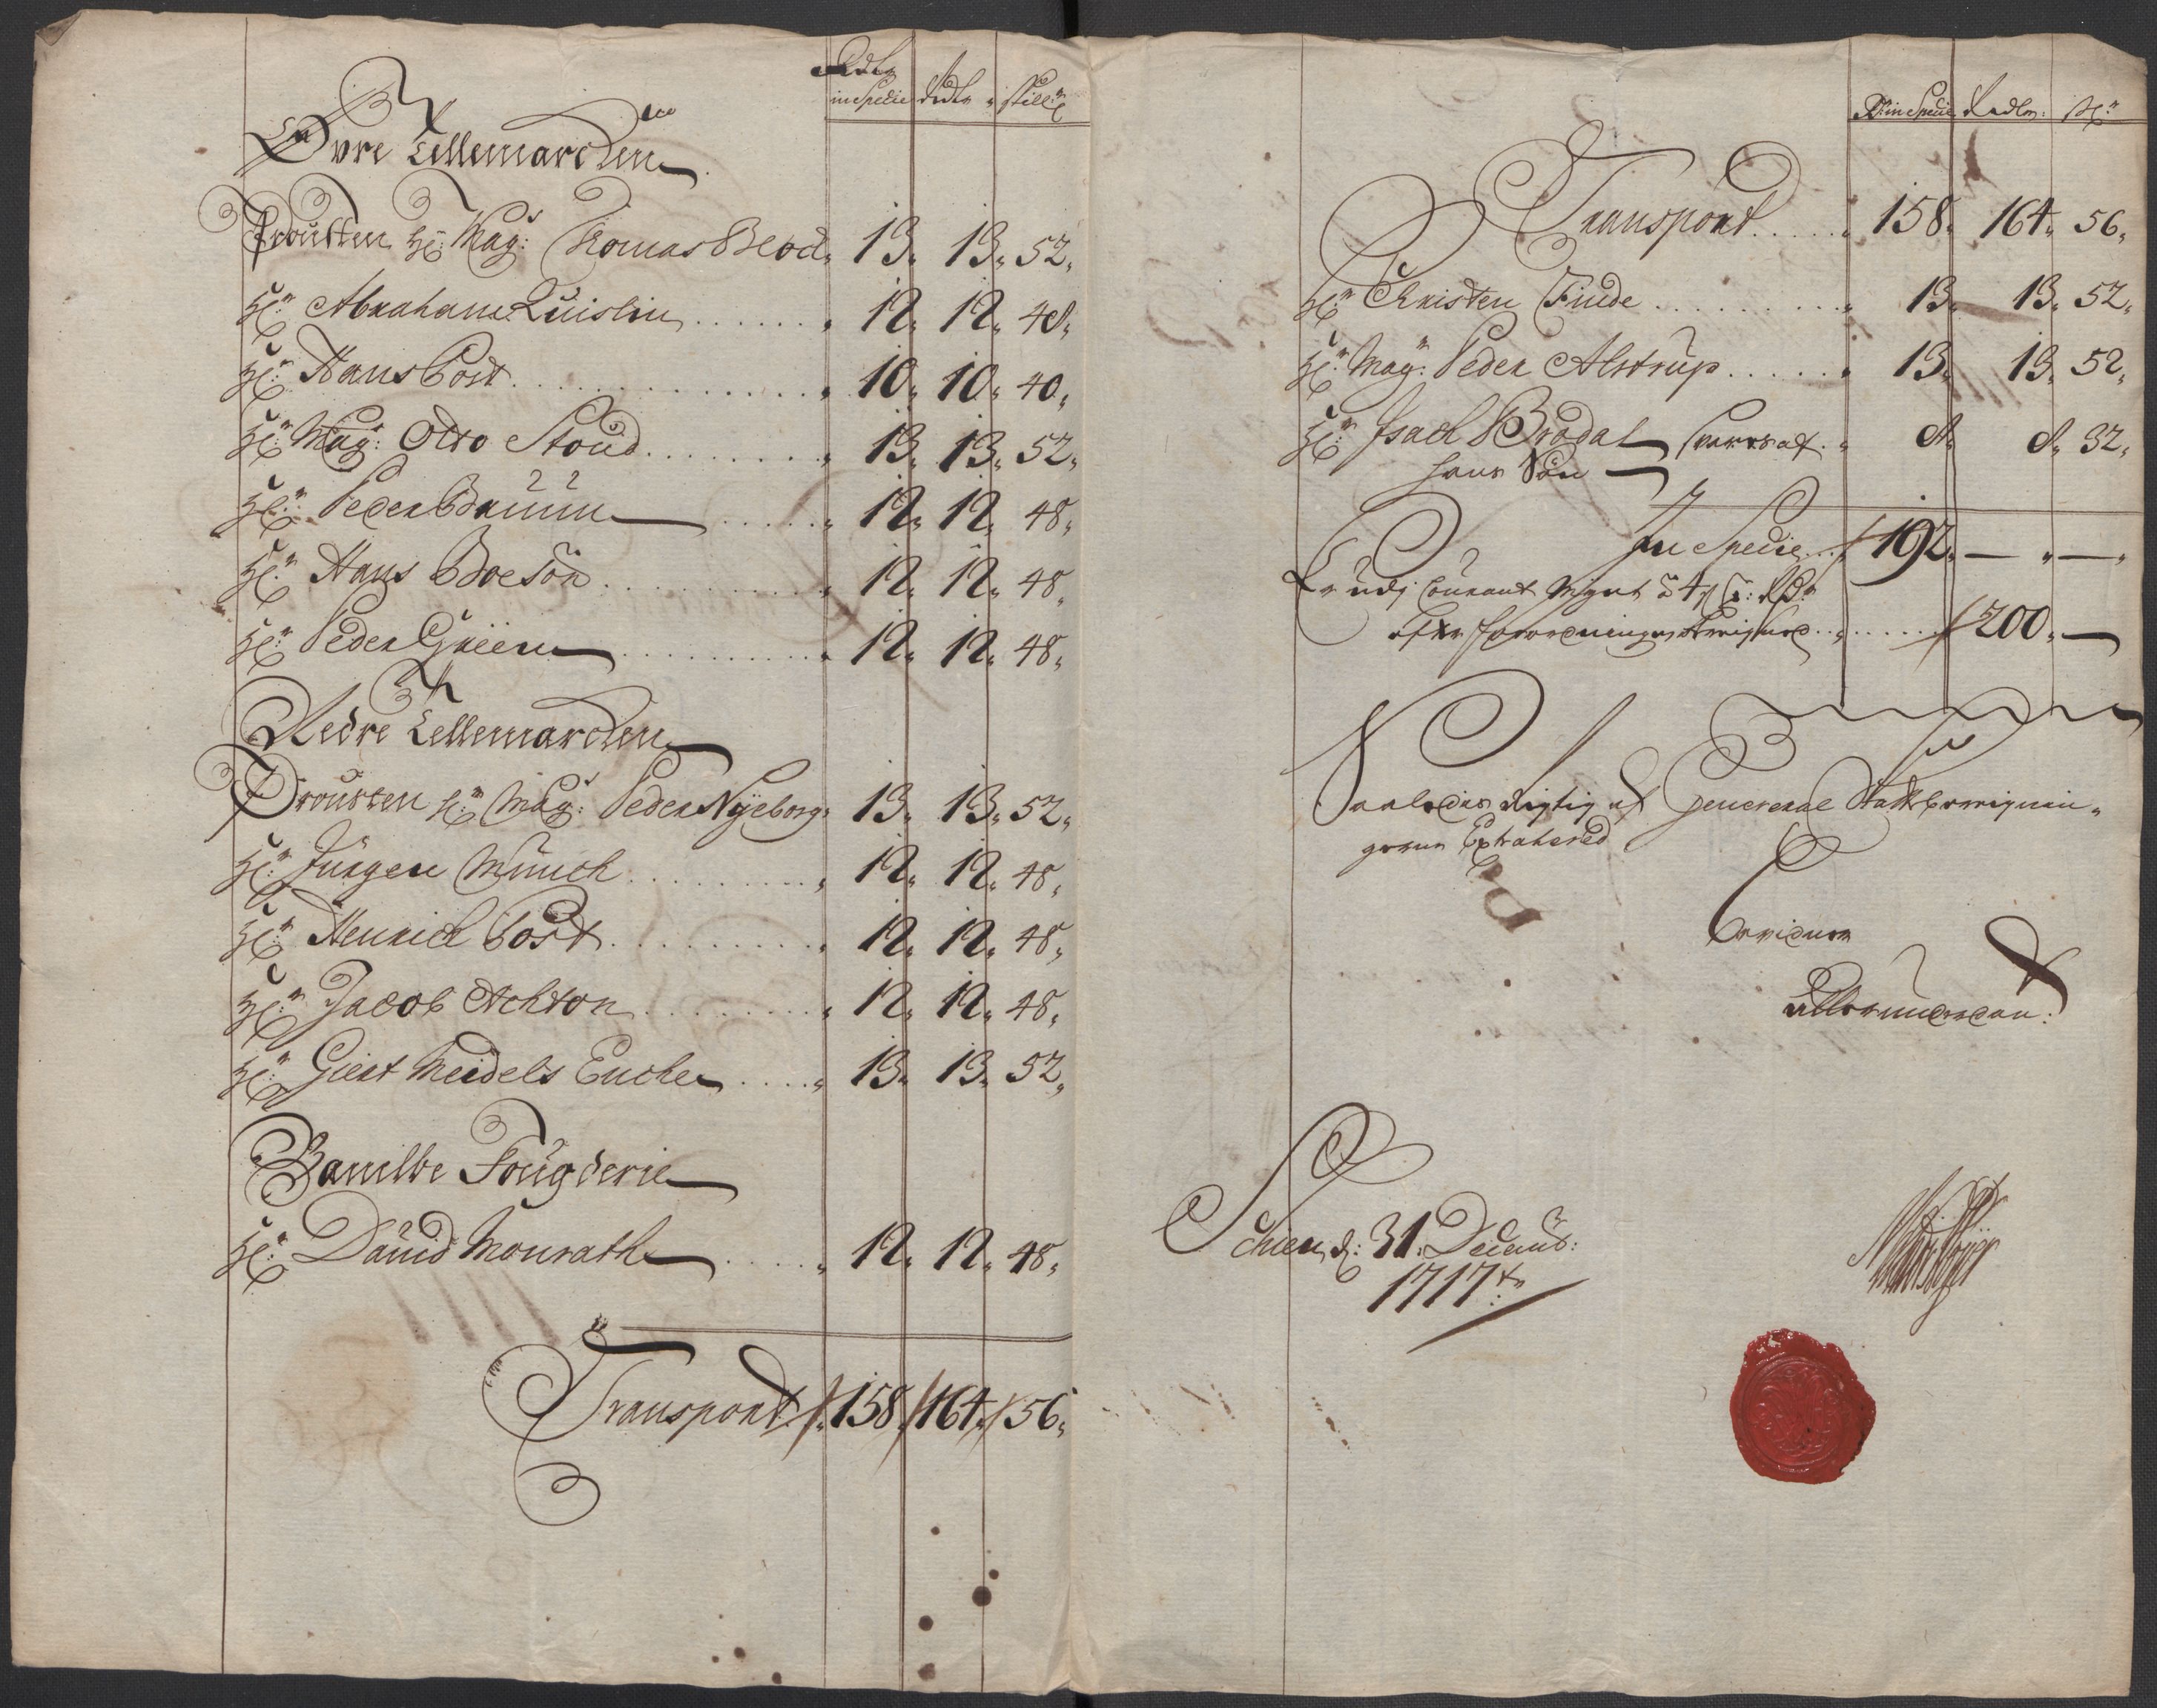 Rdlr
in Specie Rdlr skill:
Øvre Tellemarchen
Prousten Hr: Mag: Thomas Blod 13 13 52
Hr: Abraham Quislin 12 12 48
Hr: Hans Post 10 10 40
Hr: Mag: Otto Stoud 13 13 52
Hr: Peder Bruun 12 12 48
Hr: Hans Boesøn 12 12 48
Hr: Peder Griem 12 12 48
Nedre Tellemarchen
Prousten Hr: Mag: Peder Nÿeborg 13 13 52
Hr: Jürgen Münch 12 12 48
Hr: Henrich Post 12 12 48
Hr: Jacob Achton 12 12 48
Hr: Giert Meidels Encke 13 13 52
Bamble Fougderie
Hr: David Monrath 12 12 48
Transport 158 164 56
R: in Specie Rdlr: sk:
Transport 158 164 56
Hr: Christen Finde 13 13 52
Hr: Mag: Peder Alstrup 13 13 52
Hr: Isach Brodal svarer af 8 8 32
hans Søn
In Specie 192 — —
Er udj Courant Mynt
efter forordningen 200 —
Saaledes Rigtig af Generahl
Extrahered
Schien d: 31 Decemb:
1717